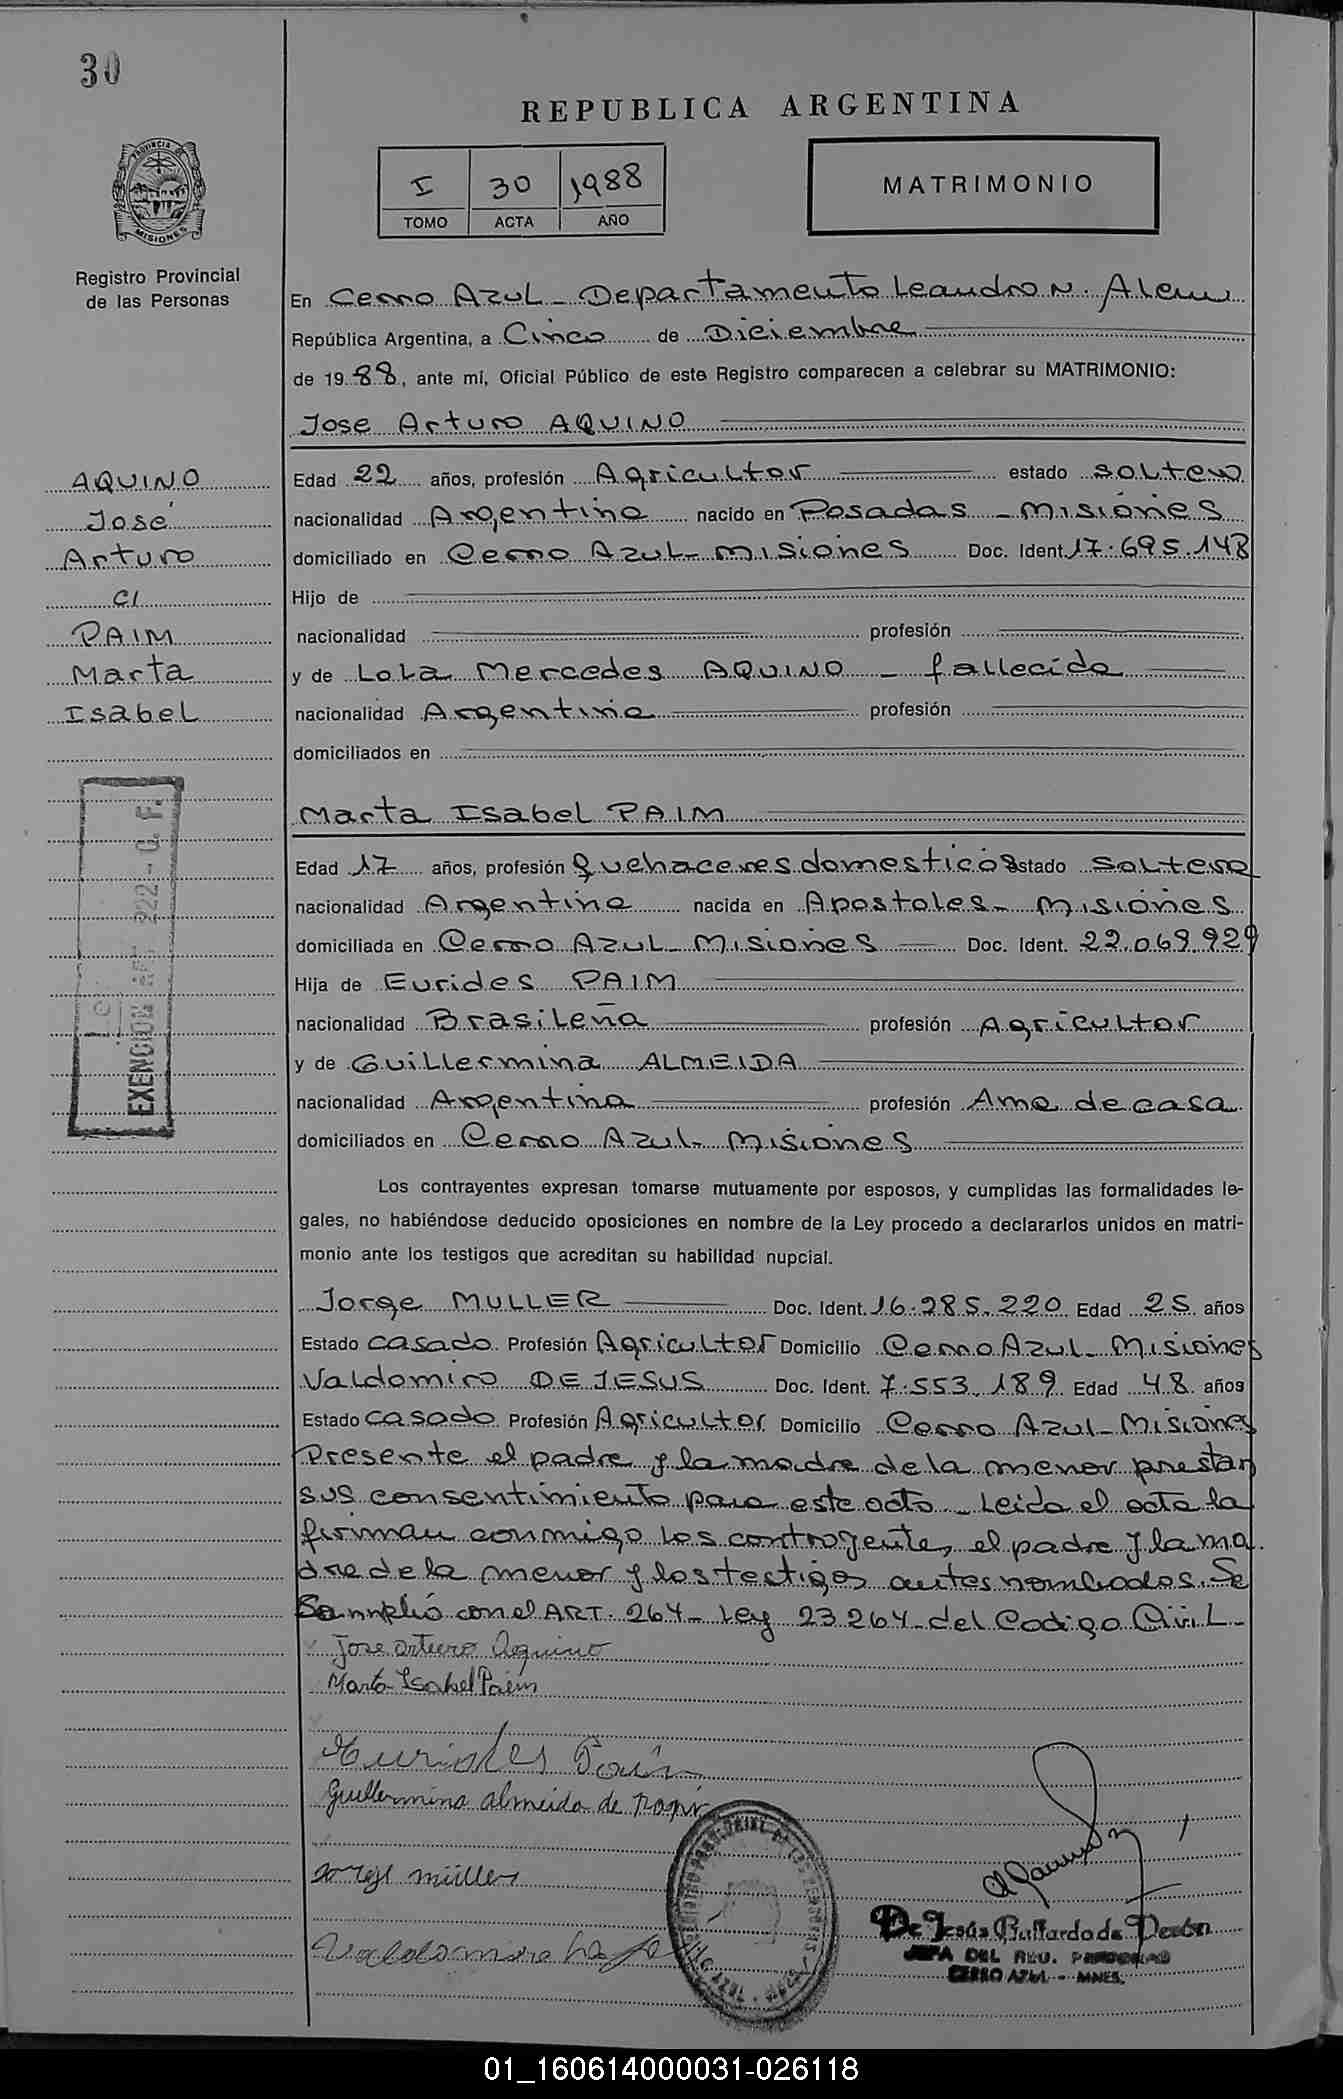 30
REPUBLICA ARGENTINA
PROVINCIA DE
MISIONES
I 30 1988
TOMO ACTA AÑO
MATRIMONIO
Registro Provincial
de las Personas
En Cerro AZUL - Departamento Leandro N. Alem
República Argentina, a Cinco de Diciembre
de 1988, ante mí, Oficial Público de este Registro comparecen a celebrar su MATRIMONIO:
Jose Arturo AQUINO
AQUINO
José
Arturo
c/
PAIM
Marta
Isabel
Edad 22 años, profesión Agricultor estado soltero
nacionalidad Argentina nacido en Posadas - Misiones
domiciliado en Cerro AZUL - Misiones Doc. Ident. 17.695.148
Hijo de
nacionalidad profesión
y de Lola Mercedes AQUINO - fallecida
nacionalidad Argentina profesión
domiciliados en
EXENCION ART 222 - C. F.
Marta Isabel PAIM
Edad 17 años, profesión Quehaceres domesticos estado soltera
nacionalidad Argentina nacida en Apostoles - Misiones
domiciliada en Cerro AZUL - Misiones Doc. Ident. 22.069.929
Hija de Eurides PAIM
nacionalidad Brasileña profesión Agricultor
y de Guillermina ALMEIDA
nacionalidad Argentina profesión Ama de casa
domiciliados en Cerro AZUL - Misiones
Los contrayentes expresan tomarse mutuamente por esposos, y cumplidas las formalidades le-
gales, no habiéndose deducido oposiciones en nombre de la Ley procedo a declararlos unidos en matri-
monio ante los testigos que acreditan su habilidad nupcial.
Jorge MULLER Doc. Ident. 16.285.220 Edad 25 años
Estado casado Profesión Agricultor Domicilio Cerro Azul - Misiones
Valdomiro DE JESUS Doc. Ident. 7.553.189 Edad 48 años
Estado casado Profesión Agricultor Domicilio Cerro Azul - Misiones
Presente el padre y la madre de la menor prestan
sus consentimiento para este acto - Leida el acta la
firman conmigo los contrayentes, el padre y la ma
dre de la menor y los testigos antes nombrados. Se
cumplió con el ART. 264 - Ley 23264 - del Codigo Civil -
Jose arturo Aquino
Marta Isabel Paim
Eurides Paim
Guillermina almeida de
Jorge müller
De Jesús Gallardo de Perón
JEFA DEL REG. PERSONAS
CERRO AZUL - MNES.
01_160614000031-026118